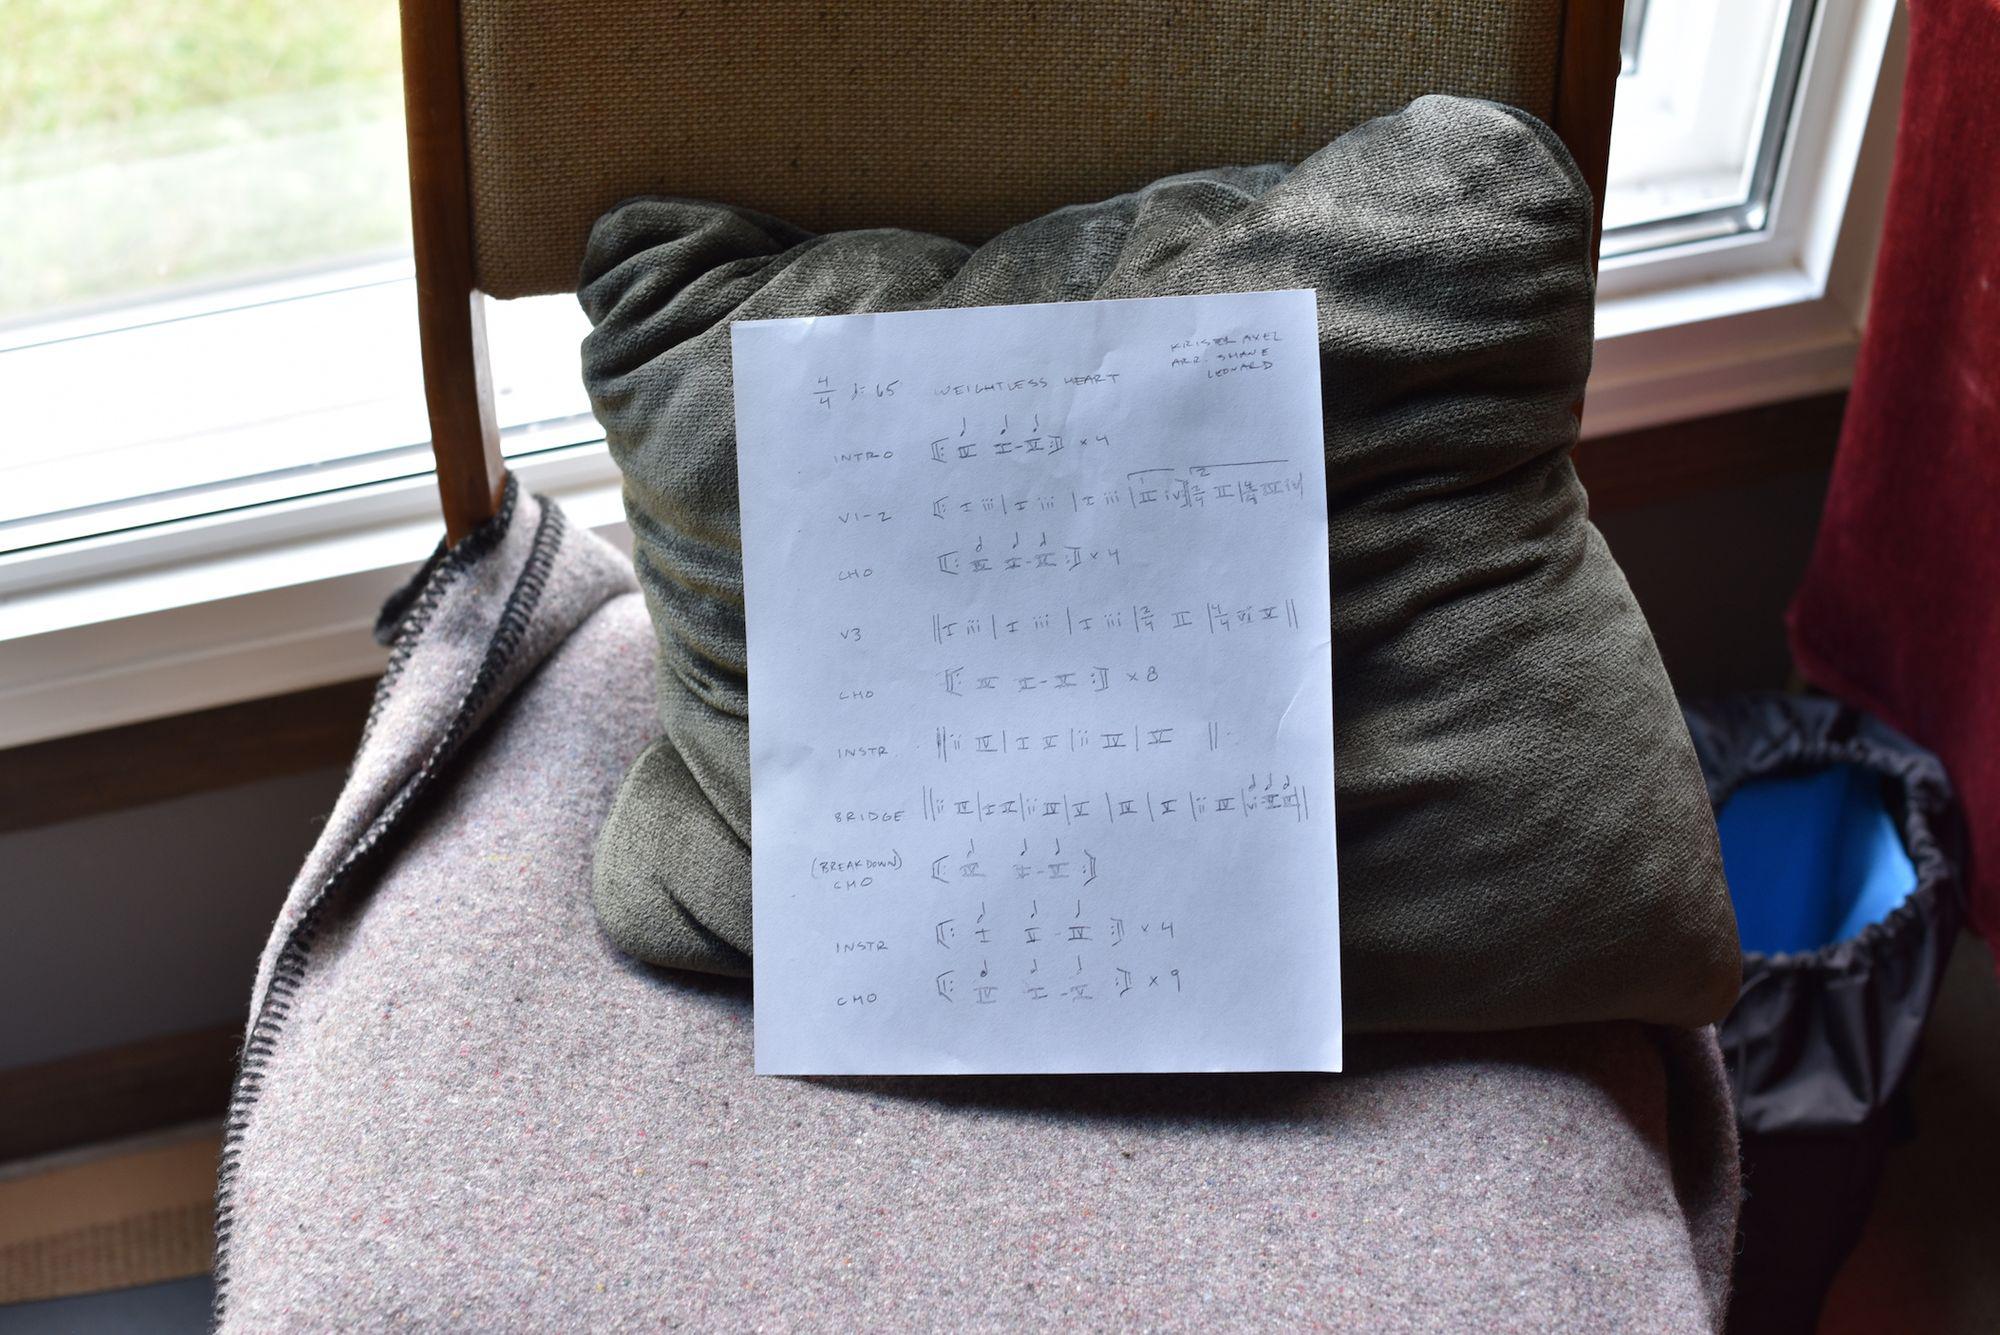 KRISTER AXEL
ARR. SHANE
LEONARD
4/4 ♩= 65 WEIGHTLESS HEART
INTRO 𝄆 IV I - V 𝄇 × 4
V1-2 I iii | I iii | I iii | 1 II | 2 2/4 II | 4/4
CHO 𝄆 IV I - V 𝄇 × 4
V3 || I iii | I iii | I iii | 2/4 II | 4/4 vi V ||
CHO 𝄆 IV I - V 𝄇 × 8
INSTR. || ii IV | I V | ii IV | V ||
BRIDGE || ii IV | I V | ii IV | V | IV | V | ii IV | vi V IV ||
(BREAKDOWN)
CHO 𝄆 IV I - V 𝄇
INSTR 𝄆 I V - IV 𝄇 × 4
CHO 𝄆 IV I - V 𝄇 × 9